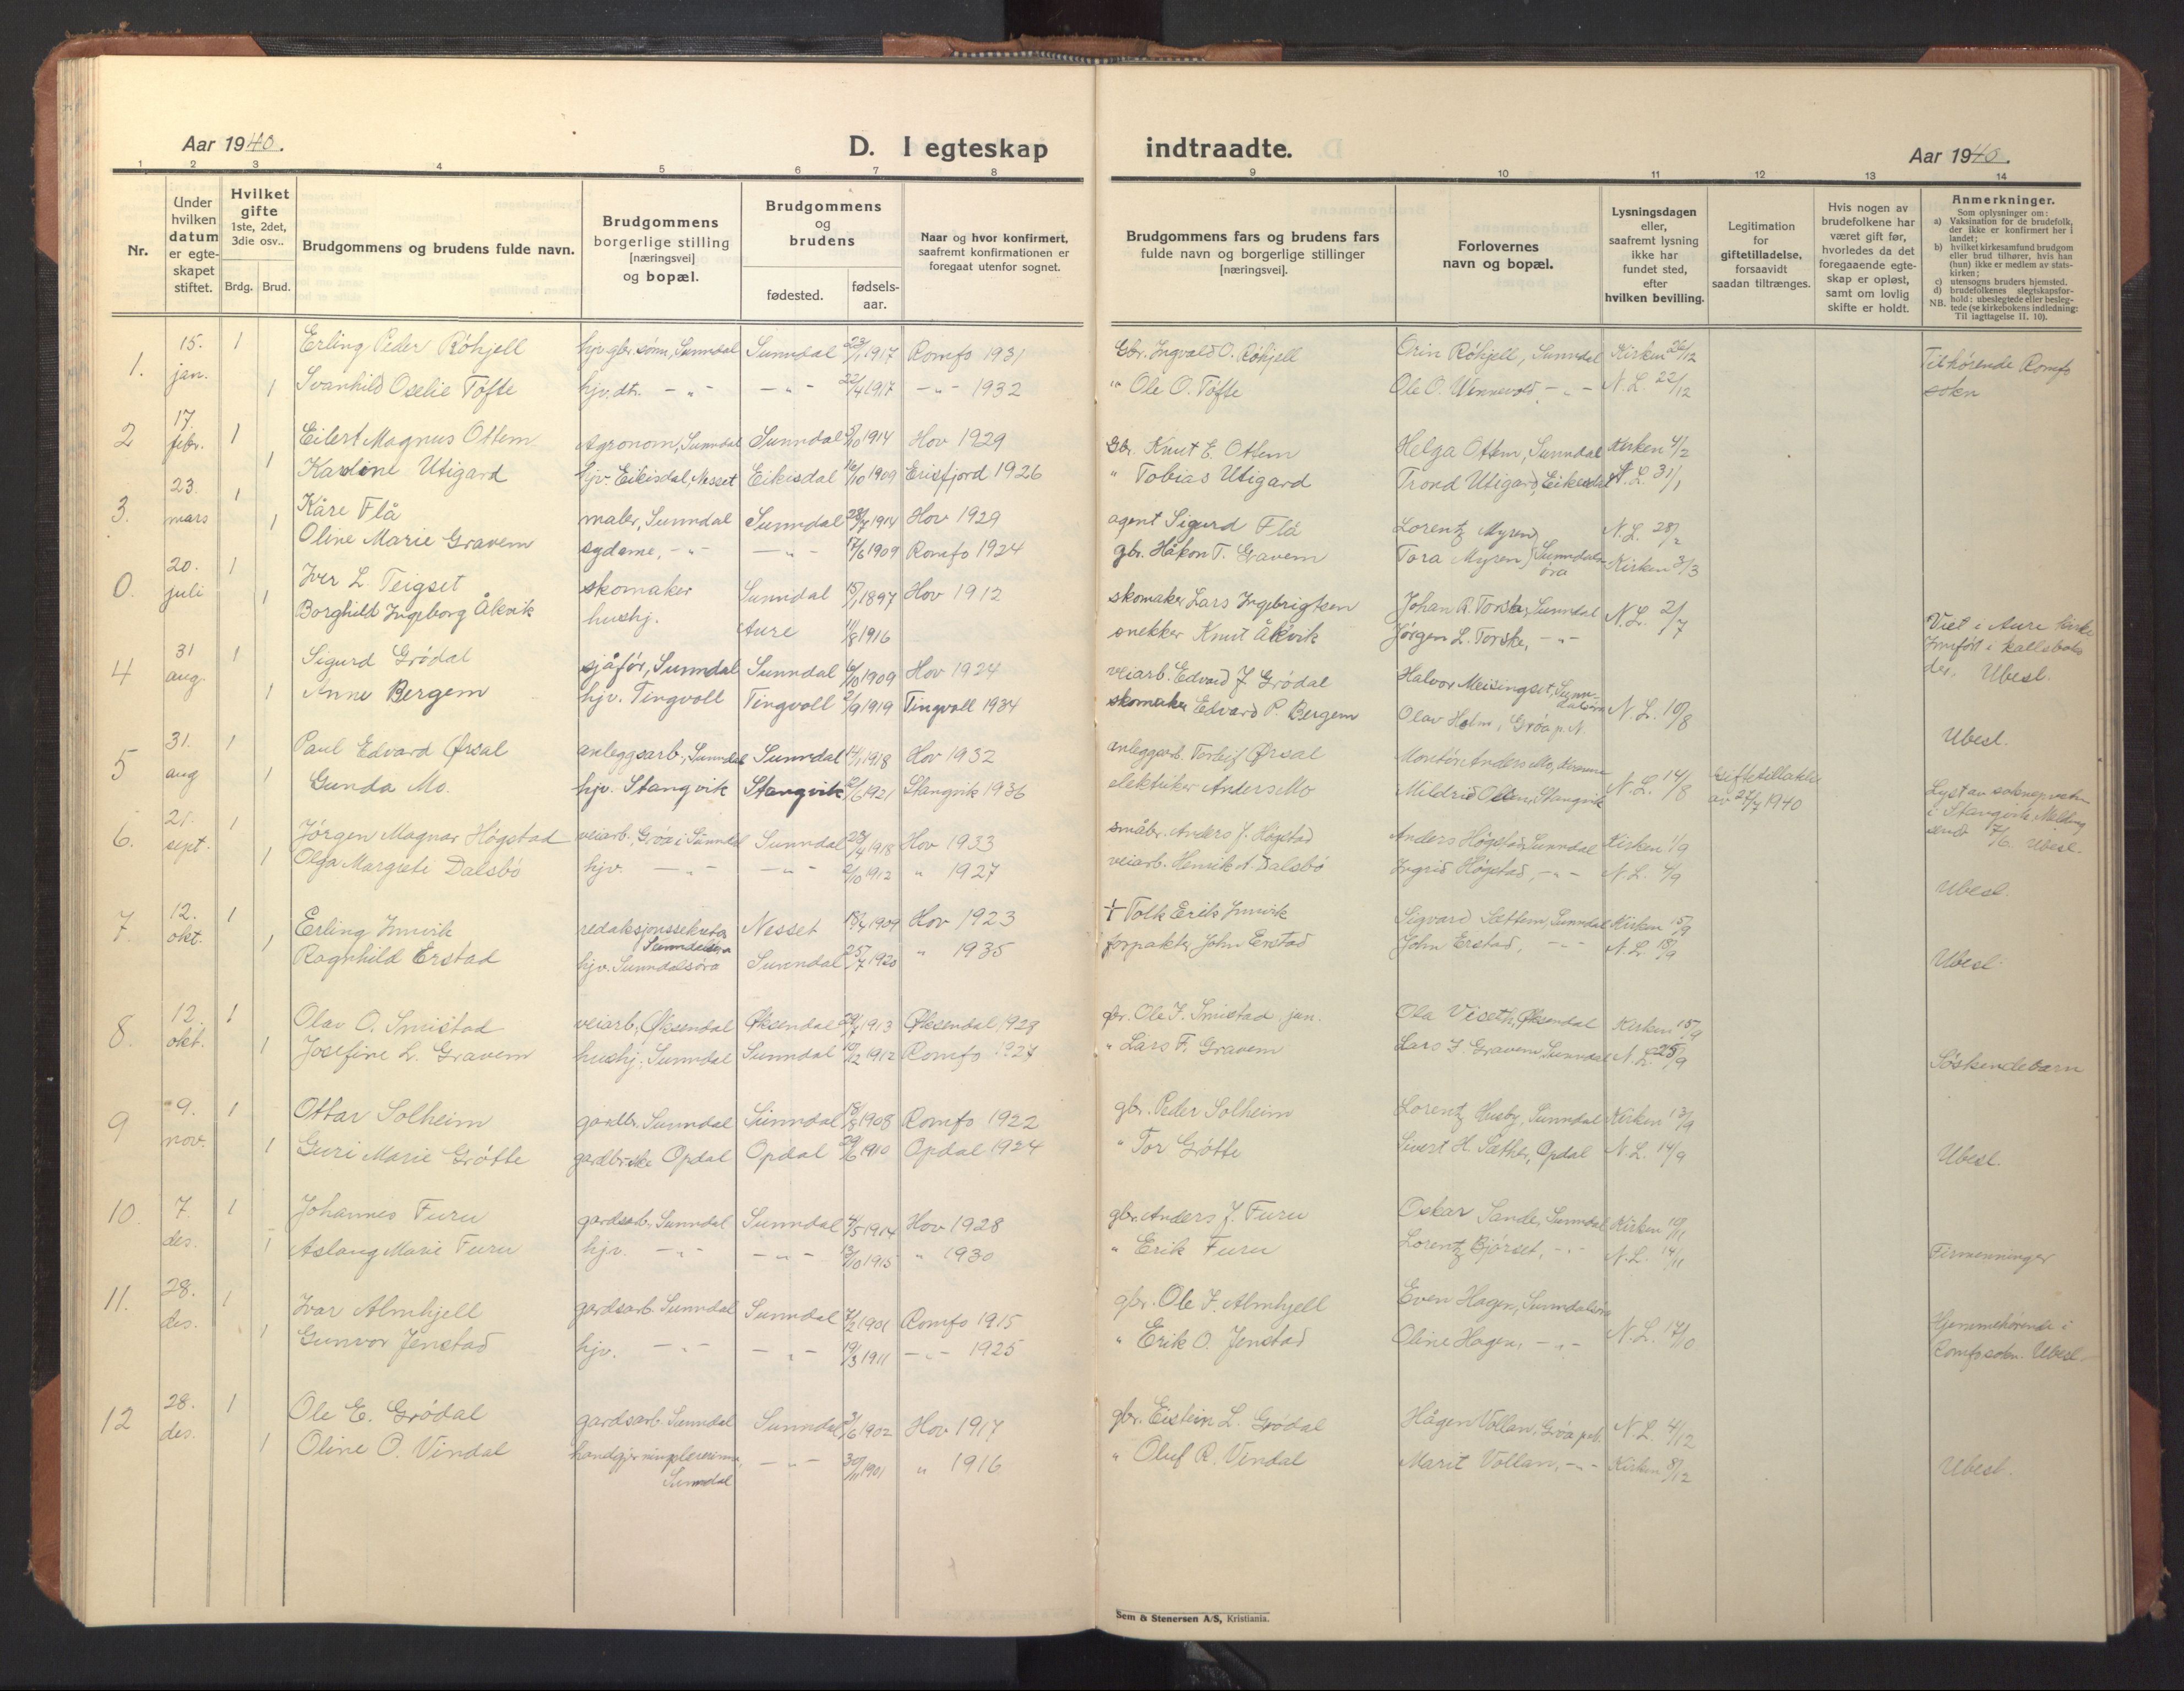 Aar 1940.
D. I egteskap indtraadte.
Aar 1940.
1 2 3 4 5 6 7 8 9 10 11 12 13 14
Nr.
Under hvilken datum er egteskapet stiftet.
Hvilket gifte 1ste, 2det, 3die osv..
Brdg. Brud.
Brudgommens og brudens fulde navn.
Brudgommens borgerlige stilling [næringsvei] og bopæl.
Brudgommens og brudens
fødested.
fødsels-aar.
Naar og hvor konfirmert, saafremt konfirmationen er foregaat utenfor sognet.
Brudgommens fars og brudens fars fulde navn og borgerlige stillinger [næringsvei].
Forlovernes navn og bopæl.
Lysningsdagen eller, saafremt lysning ikke har fundet sted, efter hvilken bevilling.
Legitimation for giftetilladelse, forsaavidt saadan tiltrænges.
Hvis nogen av brudefolkene har været gift før, hvorledes da det foregaaende egteskap er opløst, samt om lovlig skifte er holdt.
Anmerkninger.
Som oplysninger om:
a) Vaksination for de brudefolk, der ikke er konfirmert her i landet;
b) hvilket kirkesamfund brudgom eller brud tilhører, hvis han (hun) ikke er medlem av statskirken;
c) utensogns bruders hjemsted.
d) brudefolkenes slegtskapsforhold: ubeslegtede eller beslegtede (se kirkebokens indledning: Til Iagttagelse II. 10).
NB.
1. 15. jan. 1 Erling Peder Röhjell hjv. gbr. sönn, Sunndal Sunndal 23/1 1917 Romfo 1931 Gbr. Ingvald O. Röhjell Röhjell, Sunndal Kirken 26/12 Tilhörende Romfo
1 Svanhild Oselie Töfte hjv. dtr. -"- -"- 22/4 1917 -"- 1932 " Ole O. Töfte Ole O. -"- N.L. 22/12 sokn
2 17. febr. 1 Eilert Magnus Ottem Agronom, Sunndal Sunndal 1914 Hov 1929 Gbr. Knut E. Ottem Helga Ottem, Sunndal Kirken 4/2
1 Karoline Utigard hjv. Eikisdal, Nesset Eikisdal 16/10 1909 Erisfjord 1926 " Tobias Utigard Trond Utigard, Eikesdal N.L. 31/1
3. 23. mars 1 Kåre Flå maler, Sunndal Sunndal 28/7 1914 Hov 1929 agent Sigurd Flå Lorentz Myren N.L. 28/2
1 Oline Marie Gravem sydame, -"- -"- 17/6 1909 Romfo 1924 gbr. Håkon T. Gravem Tora Myren Sunndalsöra Kirken 3/3
0. 20. juli 1 Iver L. Teigset skomaker Sunndal 15/1 1897 Hov 1912 skomaker Lars Ingebrigtsen Johan R. Torske, Sunndal N.L. 2/7 Viet i Aure kirke
1 Borghild Ingeborg Åkvik hushj. Aure 11/8 1916 snekker Knut Åkvik Jörgen L. Torske, -"- Innfört i
Ubesl.
4 31 aug. 1 Sigurd Grödal sjåför, Sunndal Sunndal 6/10 1909 Hov 1924 veiarb. Edvard J. Grödal Halvor Meisingset, Sunndalsöra N.L. 10/8
1 Anne Bergem hjv. Tingvoll Tingvoll 2/9 1919 Tingvoll 1934 skomaker Edvard P. Bergem Olav Holm, Gröa p.st. Ubesl.
5 31. aug 1 Paul Edvard Örsal anleggsarb., Sunndal Sunndal 14/1 1918 Hov 1932 anleggsarb. Torleif Örsal Montör Anders Mo, N.L. 14/8 Giftetillatelse av 27/7 1940 Lyst av sokneprest
1 Gunda Mo. hjv. Stangvik Stangvik 12/6 1921 Stangvik 1936 elektriker Anders Mo Mildrid Stangvik i Stangvik. Melding
send 7/6. Ubesl.
6. 21. sept. 1 Jörgen Magnar Högstad veiarb. Gröa i Sunndal Sunndal 28/4 1918 Hov 1933 småbr. Anders J. Högstad Anders Högstad, Sunndal Kirken 1/9
1 Olga Margreti Dalsbö hjv. -"- -"- 2/10 1912 " 1927 veiarb. Henrik A Dalsbö Ingrid Högstad, -"- N.L. 4/9 Ubesl.
7. 12. okt. 1 Erling Innvik redaksjonssekretær Sunndalsöra Nesset 1909 Hov 1923 † Tolk Erik Innvik Sigvard Sættem, Sunndal Kirken 15/9
1 Ragnhild Erstad hjv. Sunndalsöra Sunndal 25/7 1920 " 1935 forpakter John Erstad John Erstad, -"- N.L. 18/9 Ubesl.
8. 12. okt. 1 Olav O. Smistad veiarb. Öksendal Öksendal 29/7 1913 Öksendal 1928 gbr. Ole F. Smistad jun. Ola Viseth, Öksendal Kirken 15/9
1 Josefine L. Gravem hushj. Sunndal Sunndal 10/12 1912 Romfo 1927 " Lars F. Gravem Lars F. Gravem, Sunndal N.L. 25/9 Söskendebarn
9 9. nov. 1 Ottar Solheim gardbr. Sunndal Sunndal 1908 Romfo 1922 gbr. Peder Solheim Lorentz Husby, Sunndal Kirken 13/9
1 Guri Marie Grötte gardbrske Opdal Opdal 29/6 1910 Opdal 1924 " Tor Grötte Sivert H. Sæther, Opdal N.L. 14/9 Ubesl.
10. 7. des. 1 Johannes Furu gardsarb. Sunndal Sunndal 4/5 1914 Hov 1928 gbr. Anders J. Furu Oskar Sande, Sunndal Kirken 10/11
1 Aslaug Marie Furu hjv. -"- -"- 13/10 1915 " 1930 " Erik Furu Lorentz Björset, -"- N.L. 14/11 Firmenninger
11. 28. des. 1 Ivar Almhjell gardsarb. Sunndal Sunndal 7/2 1901 Romfo 1915 gbr. Ole J. Almhjell Even Hagen, Sunndalsöra Hjemmehörende i
1 Gunvor Jenstad hjv. -"- -"- 19/3 1911 -"- 1925 " Erik O. Jenstad Oline Hagen, -"- N.L. 17/10 Romfo sokn. Ubesl.
12 28. des. 1 Ole E. Grödal gardsarb. Sunndal Sunndal 3/6 1902 Hov 1917 gbr. Eistein L. Grödal Hågen Vollan, Gröa p.st. N.L. 4/12
1 Oline O. Vindal Sunndal -"- 30/11 1901 " 1916 " Oluf R. Vindal Marit Vollan, -"- Kirken 8/12 Ubesl.
Sem & Stenersen A/S, Kristiania.